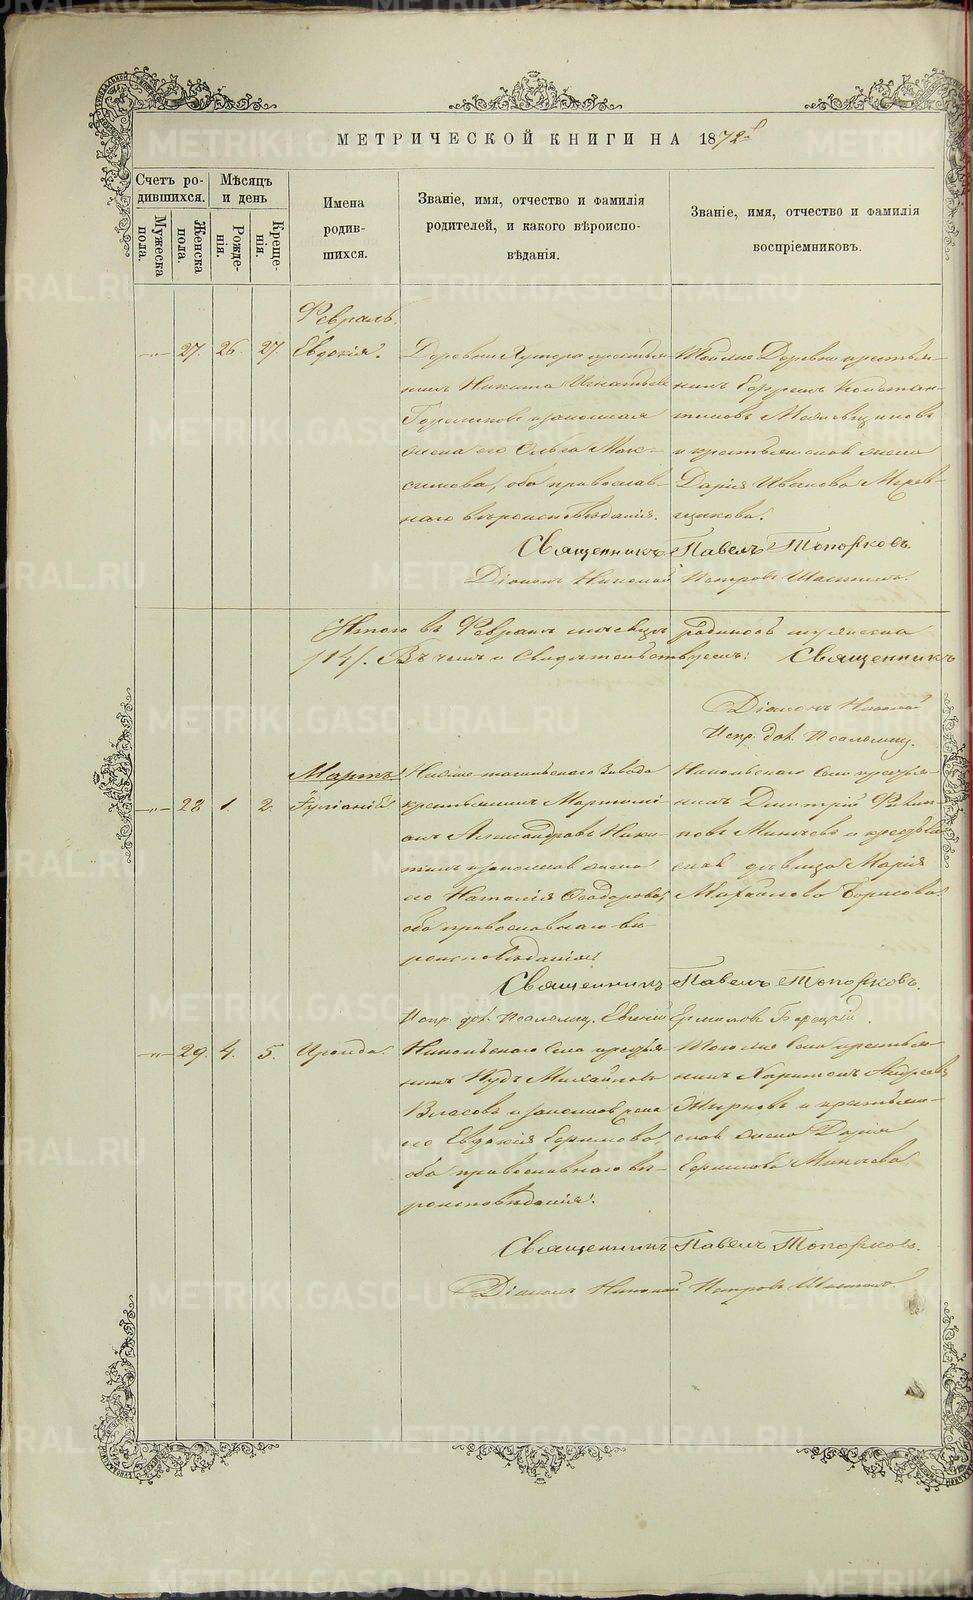 МЕТРИЧЕСКОЙ КНИГИ НА 1872 г
Счетъ ро-
дившихся.
Мѣсяцъ
и день
Мужеска
пола.
Женска
пола
Рожде-
нія.
Креще-
нія.
Имена
родив-
шихся.
Званіе, имя, отчество и фамилія
родителей, и какого вѣроиспо-
вѣданія.
Званіе, имя, отчество и фамилія
воспріемниковъ.
Февраль.
27. 26. 27. Евдокія.
Деревни Хутора крестья-
нинъ Никита Игнатьевъ
и законная
жена его Ольга Мак-
симова, оба православ-
наго вѣроисповѣданія.
Тойже Деревни крестья-
нинъ Ефремъ Констан-
тиновъ
и крестьянская жена
Дарія Иванова
Священникъ Павелъ Топорковъ.
Діаконъ Николай Петровъ
Итого въ Февралѣ мѣсяцѣ родилось мужеска
/14/. Въ чемъ и свидѣтельствуемъ: Священникъ
Діаконъ Николай
Испр. дол. Псаломщ.
Мартъ.
28 1 2.
Нижне-тагильскаго Завода
крестьянинъ
Александровъ Ники-
тинъ и законная жена
его Наталія Ѳеодорова,
оба православнаго вѣ-
роисповѣданія.
Никольскаго Села крестья-
нинъ Димитрій Филип-
повъ Минѣевъ и крестьян-
ская дѣвица Марія
Михайлова Борисова.
Священникъ Павелъ Топорковъ.
Испр. дол. Псаломщ. Евгеній Ермиловъ
29. 4. 5. Ираида.
Никольскаго Села крестья-
нинъ Михайловъ
Власовъ и законная жена
его Евдокія Ефимова,
оба православнаго вѣ-
роисповѣданія.
Тогоже Села крестья-
нинъ Харитонъ Андреевъ
Жирновъ и крестьян-
ская жена Дарія
Ефимова Минѣева.
Священникъ Павелъ Топорковъ.
Діаконъ Николай Петровъ
METRIKI.GASO-URAL.RU